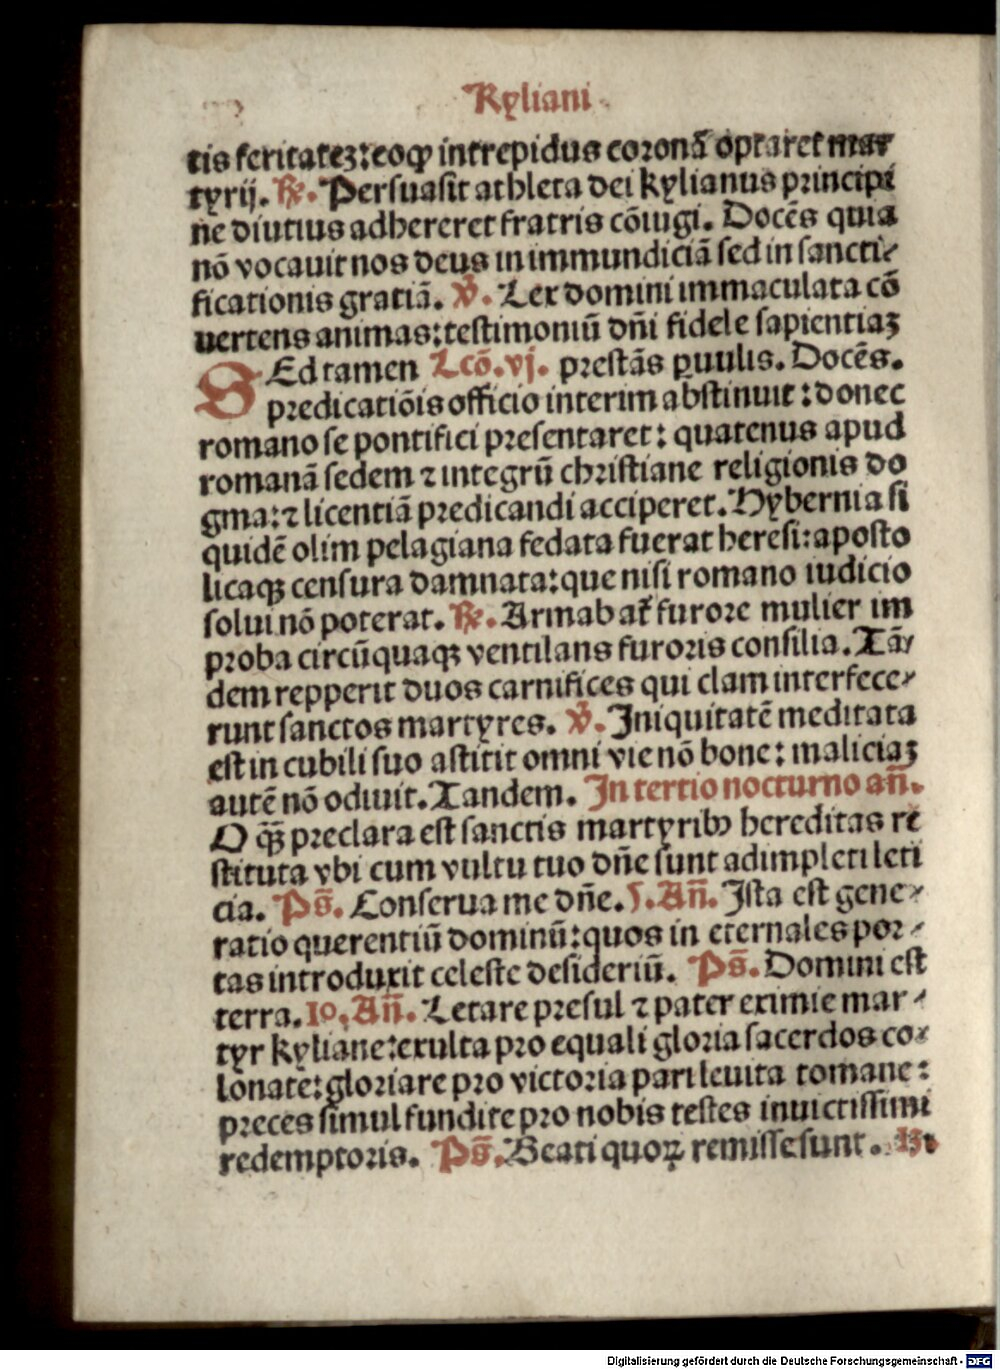 Kyliani
tis feritatez: eoqꝫ intrepidus coronā optaret mar
tyrij. ℟. Persuasit athleta dei kylianus principi
ne diutius adhereret fratris cōiugi. Docēs quia
nō vocauit nos deus in immundiciā sed in sancti-
ficationis gratiā. ℣. Lex domini immaculata cō
uertens animas: testimoniū dn̄i fidele sapientiaꝫ
SEd tamen Lcō. vj. prestās ꝑuulis. Docēs.
predicatiōis officio interim abstinuit: donec
romano se pontifici presentaret: quatenus apud
romanā sedem ⁊ integrū christiane religionis do
gma: ⁊ licentiā predicandi acciperet. Hybernia si
quidē olim pelagiana fedata fuerat heresi: aposto
licaqꝫ censura damnata: que nisi romano iudicio
solui nō poterat. ℟. Armabat᷑ furore mulier im
proba circūquaqꝫ ventilans furoris consilia. Tā-
dem repperit duos carnifices qui clam interfece-
runt sanctos martyres. ℣. Iniquitatē meditata
est in cubili suo astitit omni vie nō bone: maliciaꝫ
autē nō odiuit. Tandem. In tertio nocturno an̄.
O q̄ꝫ preclara est sanctis martyribꝰ hereditas re
stituta vbi cum vultu tuo dn̄e sunt adimpleti leti
cia. Ps̄. Conserua me dn̄e. 5. An̄. Ista est gene-
ratio querentiū dominū: quos in eternales por-
tas introduxit celeste desideriū. Ps̄. Domini est
terra. 10. An̄. Letare presul ⁊ pater eximie mar-
tyr kyliane: exulta pro equali gloria sacerdos co-
lonate: gloriare pro victoria pari leuita tomane:
preces simul fundite pro nobis testes inuictissimi
redemptoris. Ps̄. Beati quoꝝ remisse sunt.
Digitalisierung gefördert durch die Deutsche Forschungsgemeinschaft - DFG